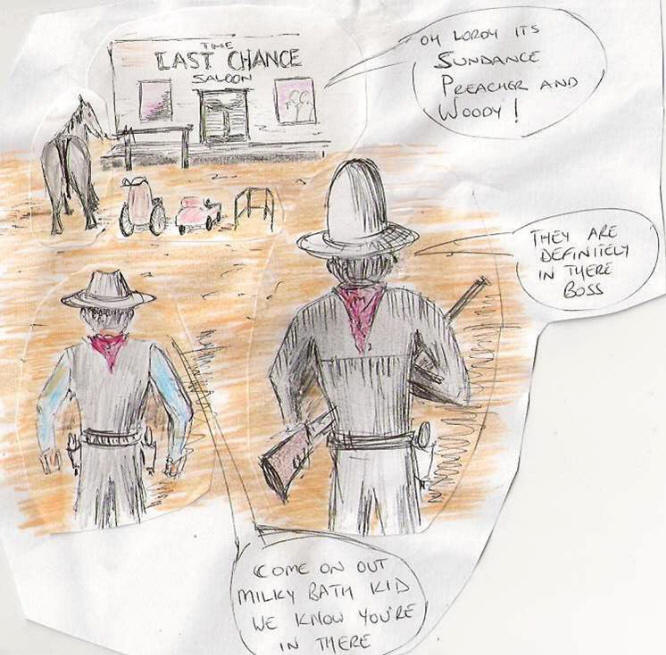 THE
LAST CHANCE
SALOON
OH LORDY ITS
SUNDANCE
PREACHER AND
WOODY!
THEY ARE
DEFINITELY
IN THERE
BOSS
COME ON OUT
MILKY BATH KID
WE KNOW YOU'RE
IN THERE